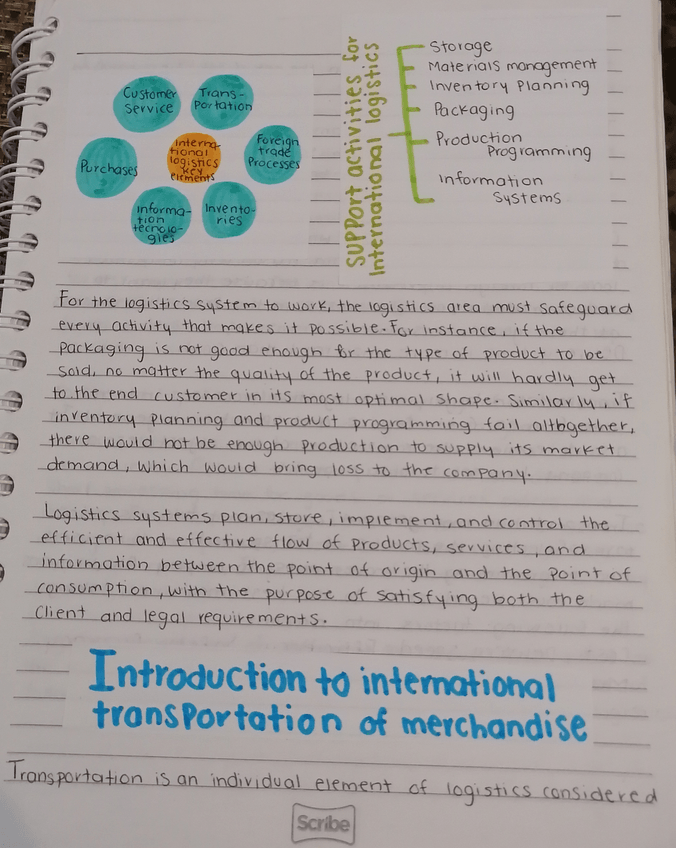 Customer
Service
Trans-
Portation
Foreign
trade
Processes
Invento-
ries
Informa-
tion
tecnolo-
gies
Purchases
Interna-
tional
logistics
key
elements
Support activities for
International logistics
Storage
Materials management
Inventory Planning
Packaging
Production
Programming
Information
Systems
For the logistics system to work, the logistics area must safeguard
every activity that makes it possible. For instance, if the
packaging is not good enough for the type of product to be
sold, no matter the quality of the product, it will hardly get
to the end customer in its most optimal shape. Similarly, if
inventory planning and product programming fail altogether,
there would not be enough production to supply its market
demand, which would bring loss to the company.
Logistics systems plan, store, implement, and control the
efficient and effective flow of products, services, and
information between the point of origin and the point of
consumption, with the purpose of satisfying both the
client and legal requirements.
Introduction to international
transportation of merchandise
Transportation is an individual element of logistics considered
Scribe